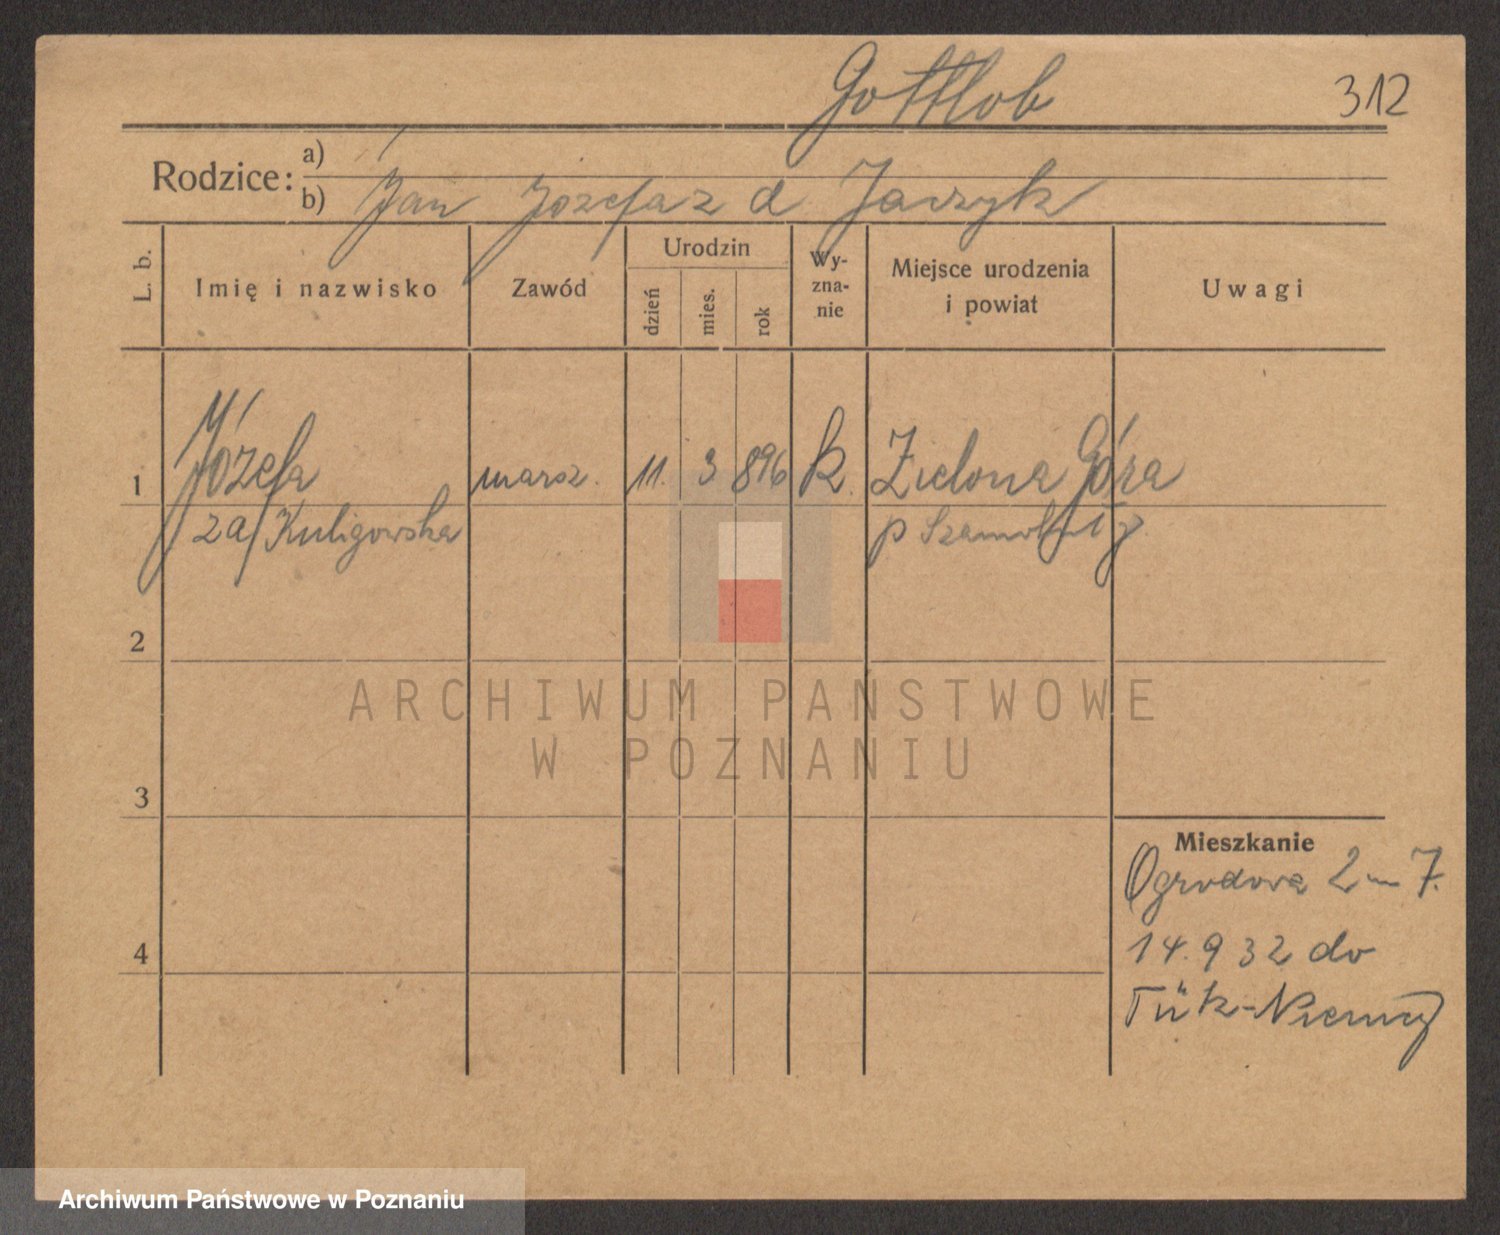 Gottlob 312
Rodzice: a)
b) Jan Józefa z d Jaczyk
L. b. Imię i nazwisko Zawód Urodzin dzień mies. rok Wy-zna-nie Miejsce urodzenia i powiat Uwagi
1 Józefa marsz. 11. 3 896 k. Zielona Góra
za Kuligowska p Szamotuły
2
3
Mieszkanie
Ogrodowa 2 m 7.
4 14.9 32 do
Niemcy
ARCHIWUM PAŃSTWOWE
W POZNANIU
Archiwum Państwowe w Poznaniu